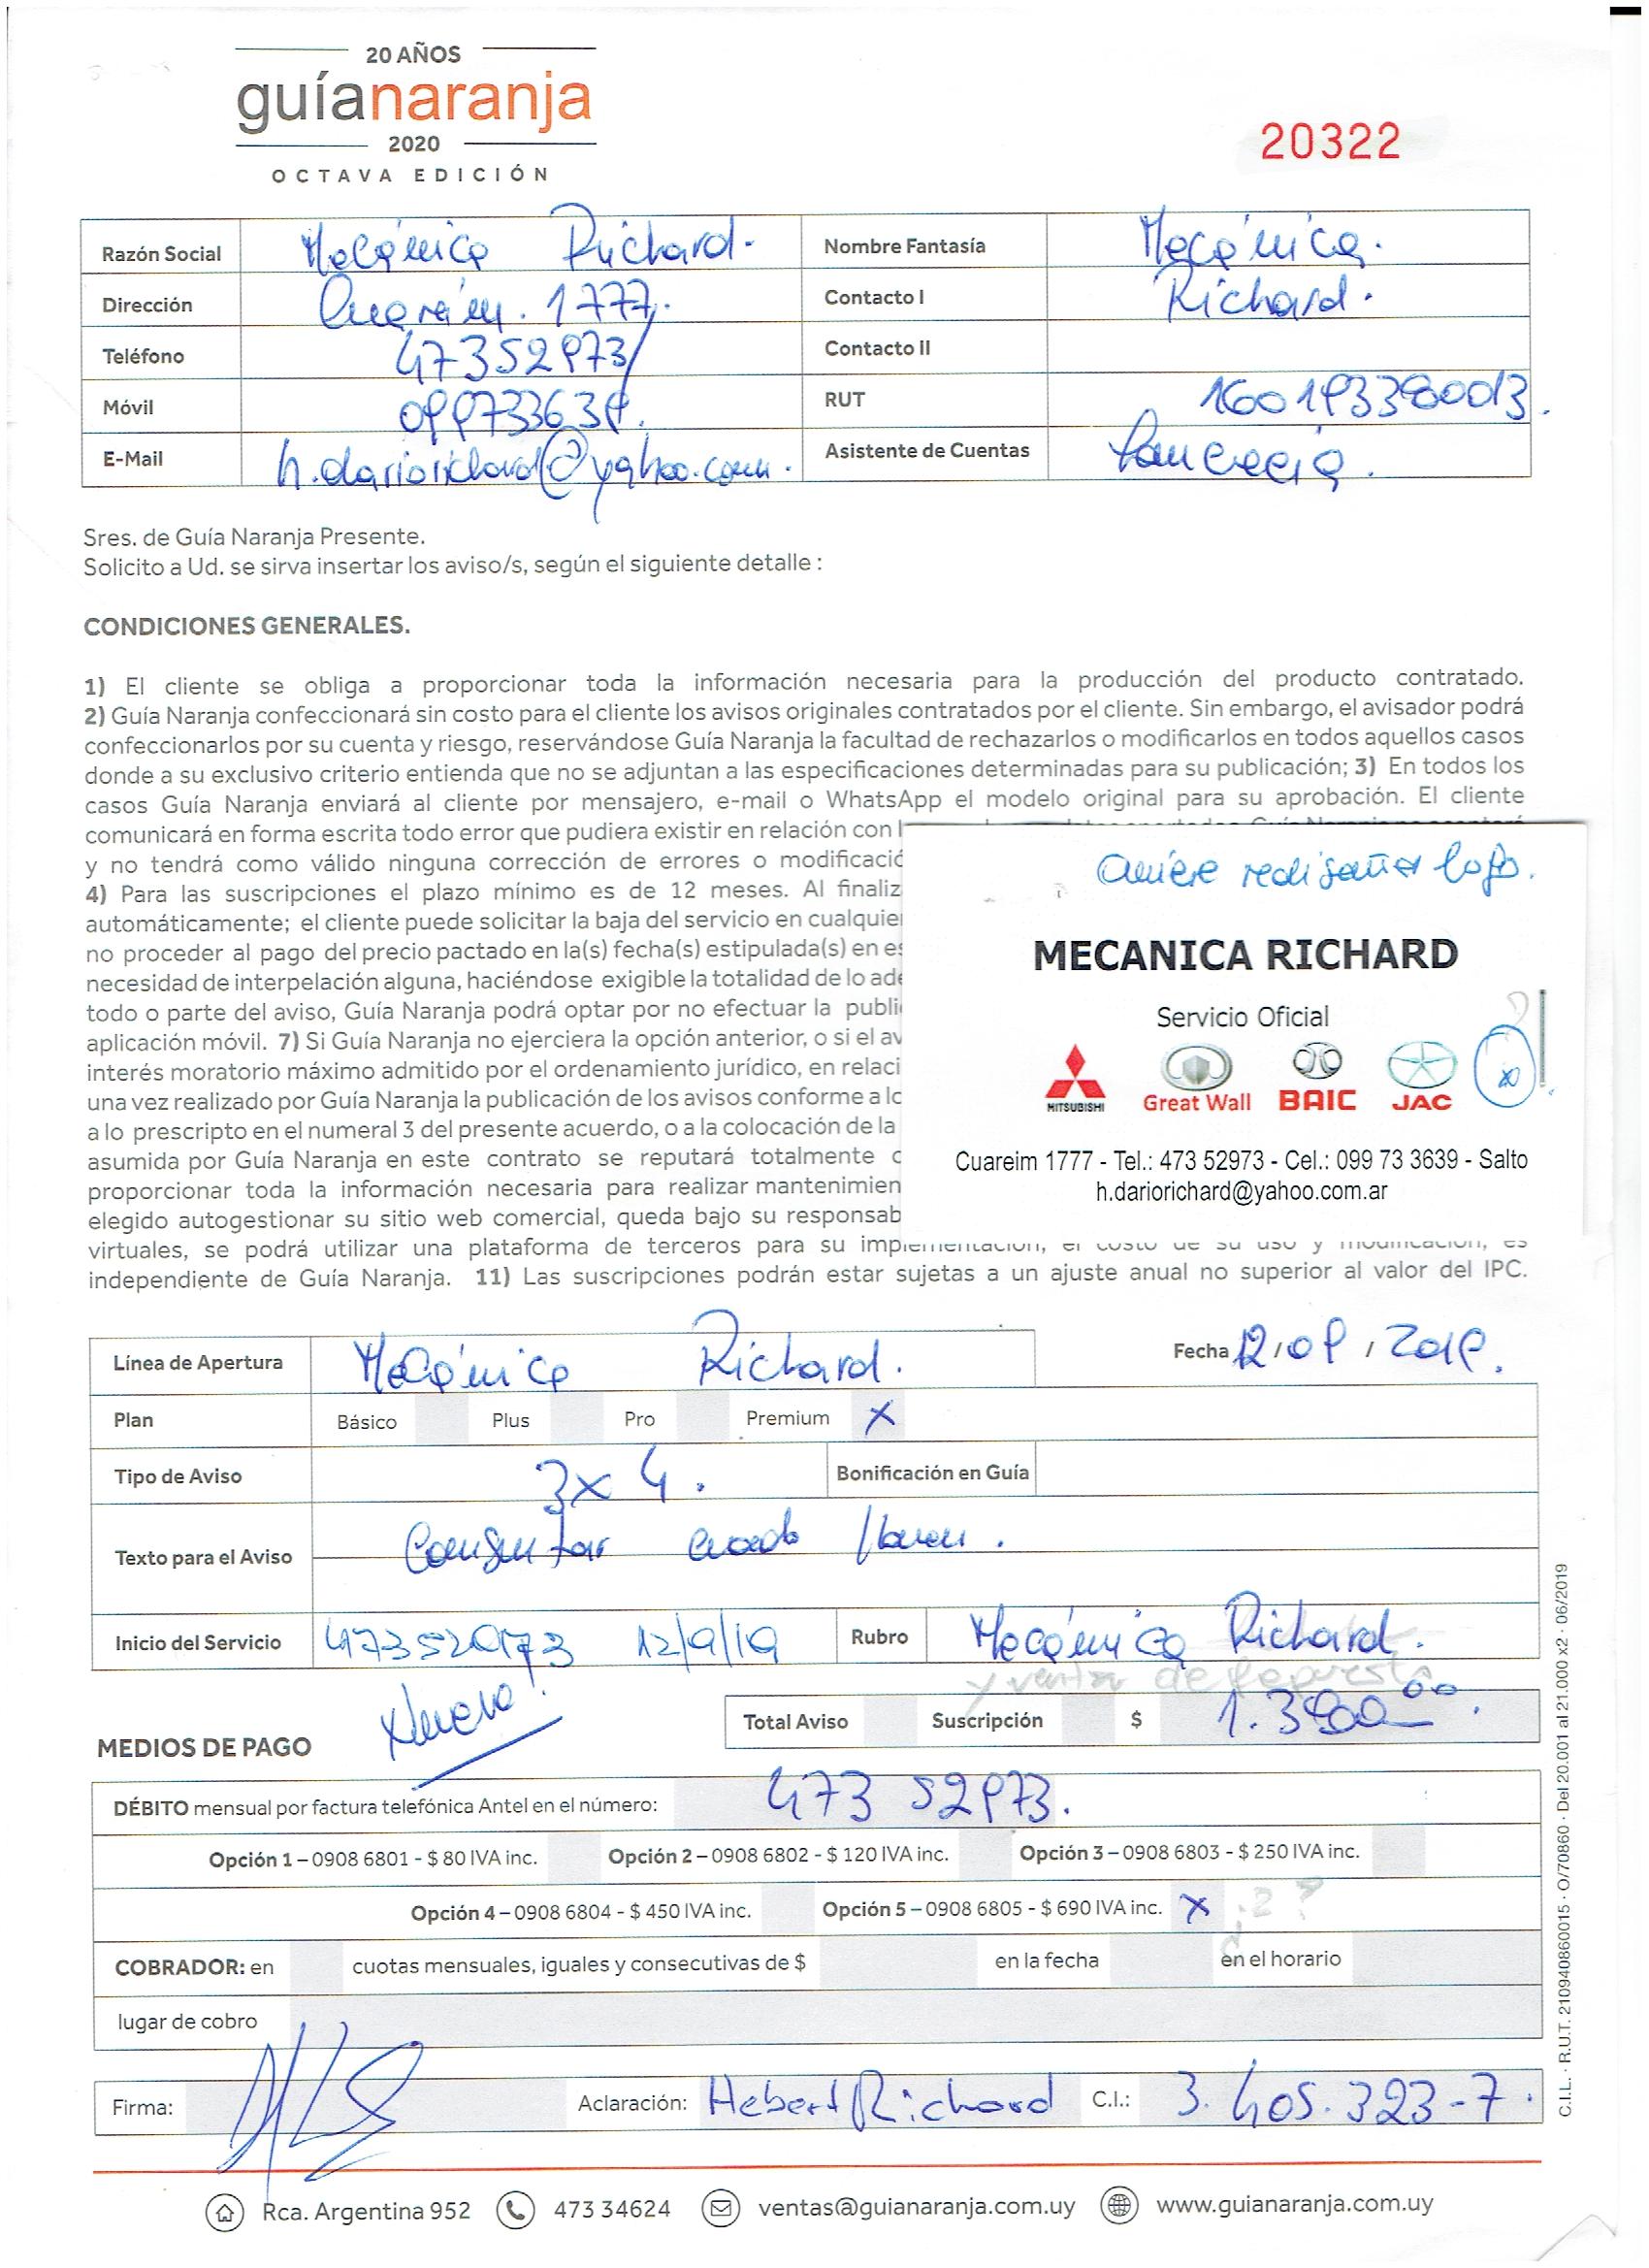 20 AÑOS
guíanaranja
2020
OCTAVA EDICIÓN
20322
Razón Social Mecánica Richard. Nombre Fantasía Mecánica.
Dirección Cuareim. 1777. Contacto I Richard.
Teléfono 47352973 Contacto II
Móvil 099733639. RUT 160193380013.
E-Mail h.dariorichard@yahoo.com. Asistente de Cuentas
Sres. de Guía Naranja Presente.
Solicito a Ud. se sirva insertar los aviso/s, según el siguiente detalle :
CONDICIONES GENERALES.
1) El cliente se obliga a proporcionar toda la información necesaria para la producción del producto contratado.
2) Guía Naranja confeccionará sin costo para el cliente los avisos originales contratados por el cliente. Sin embargo, el avisador podrá
confeccionarlos por su cuenta y riesgo, reservándose Guía Naranja la facultad de rechazarlos o modificarlos en todos aquellos casos
donde a su exclusivo criterio entienda que no se adjuntan a las especificaciones determinadas para su publicación; 3) En todos los
casos Guía Naranja enviará al cliente por mensajero, e-mail o WhatsApp el modelo original para su aprobación. El cliente
comunicará en forma escrita todo error que pudiera existir en relación con
y no tendrá como válido ninguna corrección de errores o
4) Para las suscripciones el plazo mínimo es de 12 meses. Al
automáticamente; el cliente puede solicitar la baja del servicio en
no proceder al pago del precio pactado en la(s) fecha(s) estipulada(s) en
necesidad de interpelación alguna, haciéndose exigible la totalidad de lo
todo o parte del aviso, Guía Naranja podrá optar por no efectuar la
aplicación móvil. 7) Si Guía Naranja no ejerciera la opción anterior, o si el
interés moratorio máximo admitido por el ordenamiento jurídico, en
una vez realizado por Guía Naranja la publicación de los avisos conforme a
a lo prescripto en el numeral 3 del presente acuerdo, o a la colocación de la
asumida por Guía Naranja en este contrato se reputará totalmente
proporcionar toda la información necesaria para realizar
elegido autogestionar su sitio web comercial, queda bajo su
virtuales, se podrá utilizar una plataforma de terceros para su implementación, el costo de su uso y modificación, es
independiente de Guía Naranja. 11) Las suscripciones podrán estar sujetas a un ajuste anual no superior al valor del IPC.
Quiere rediseñar logo.
MECANICA RICHARD
Servicio Oficial
MITSUBISHI Great Wall BAIC JAC
Cuareim 1777 - Tel.: 473 52973 - Cel.: 099 73 3639 - Salto
h.dariorichard@yahoo.com.ar
Línea de Apertura Mecánica Richard. Fecha 12/09/2019.
Plan Básico Plus Pro Premium X
Tipo de Aviso 3x4. Bonificación en Guía
Texto para el Aviso Consultar
Inicio del Servicio 47352973 12/9/19 Rubro Mecánica Richard.
y venta de repuesto
Nuevo!
Total Aviso Suscripción $ 1.380 00.
MEDIOS DE PAGO
DÉBITO mensual por factura telefónica Antel en el número: 473 52973.
Opción 1 – 0908 6801 - $ 80 IVA inc. Opción 2 – 0908 6802 - $ 120 IVA inc. Opción 3 – 0908 6803 - $ 250 IVA inc.
Opción 4 – 0908 6804 - $ 450 IVA inc. Opción 5 – 0908 6805 - $ 690 IVA inc. X ¿2?
COBRADOR: en cuotas mensuales, iguales y consecutivas de $ en la fecha en el horario
lugar de cobro
Firma: Aclaración: Hebert Richard C.I.: 3.405.323-7.
Rca. Argentina 952 473 34624 ventas@guianaranja.com.uy www.guianaranja.com.uy
C.I.L. · R.U.T. 210940860015 · O/70860 · Del 20.001 al 21.000 x2 · 06/2019